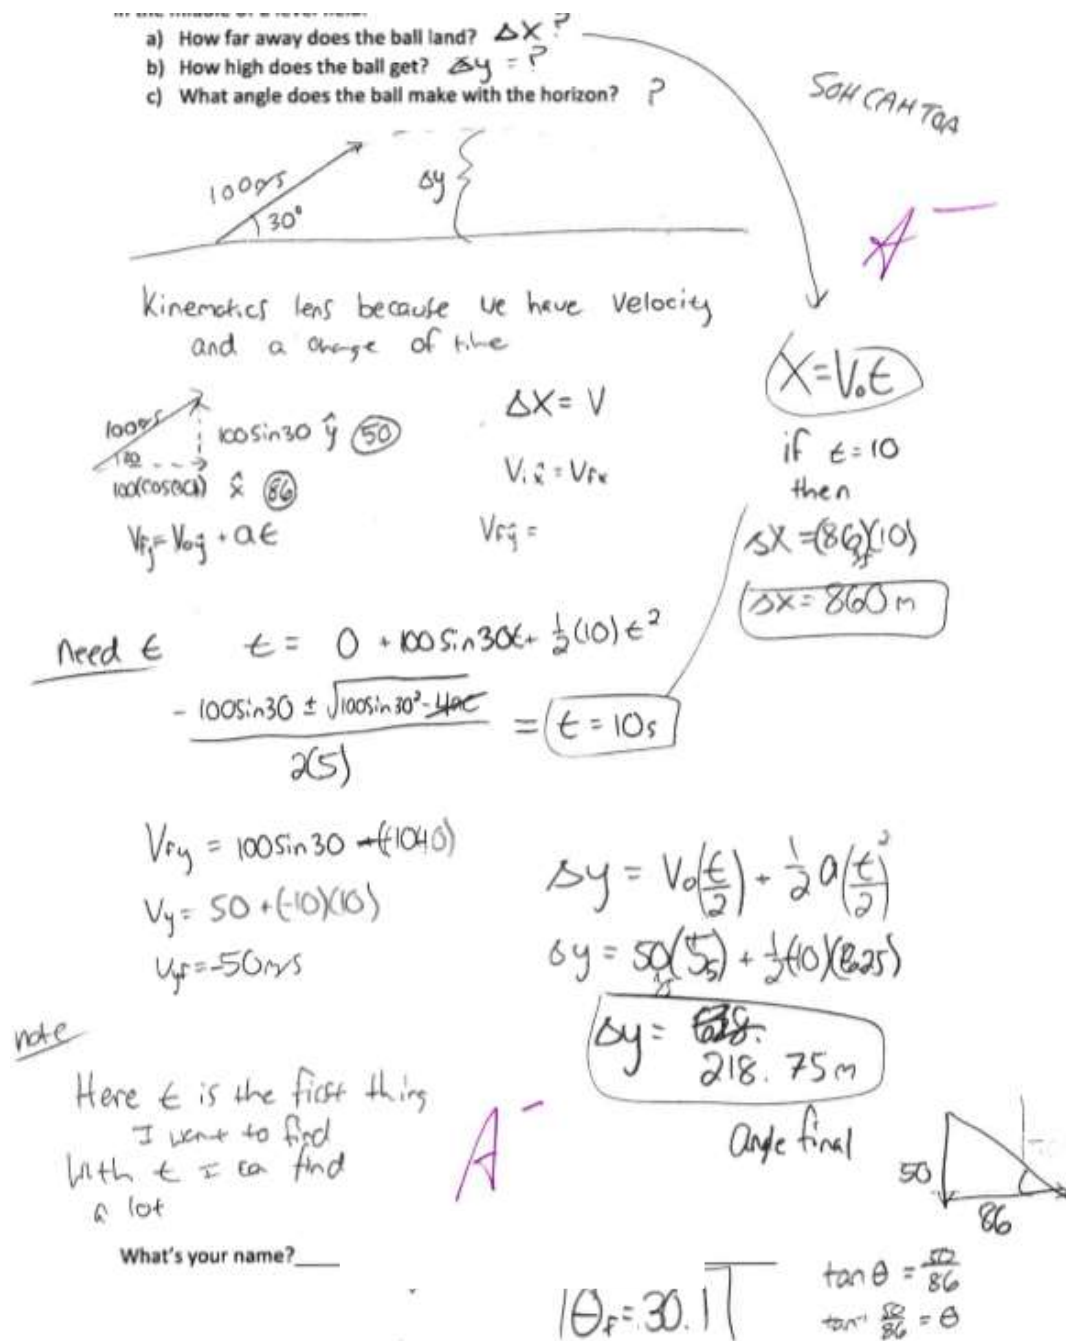 a) How far away does the ball land? Δx ?
b) How high does the ball get? Δy = ?
c) What angle does the ball make with the horizon? ?
SOH CAH TOA
100m/s
30°
Δy
A-
Kinematics lens because we have velocity
and a change of time
100m/s
100sin30 ŷ 50
x̂ 86
Vfy = Voŷ + at
ΔX = V
Vix̂ = Vfx
Vfŷ =
X = V₀t
if t = 10
then
ΔX = (86)(10)
ΔX = 860m
need t
t = 0 + 100sin30t + ½(10)t²
- 100sin30 ± √100sin30² - 4ac
2(5)
= t = 10s
Vfy = 100sin30
Vy = 50 + (-10)(10)
Vyf = -50m/s
Δy = V₀(t/2) + ½a(t/2)²
Δy = 50
Δy =
218.75m
note
Here t is the first thing
I want to find
With t I can find
a lot
A-
Angle final
50
86
What's your name?
tan θ = 50/86
tan⁻¹ 50/86 = θ
θf = 30.1